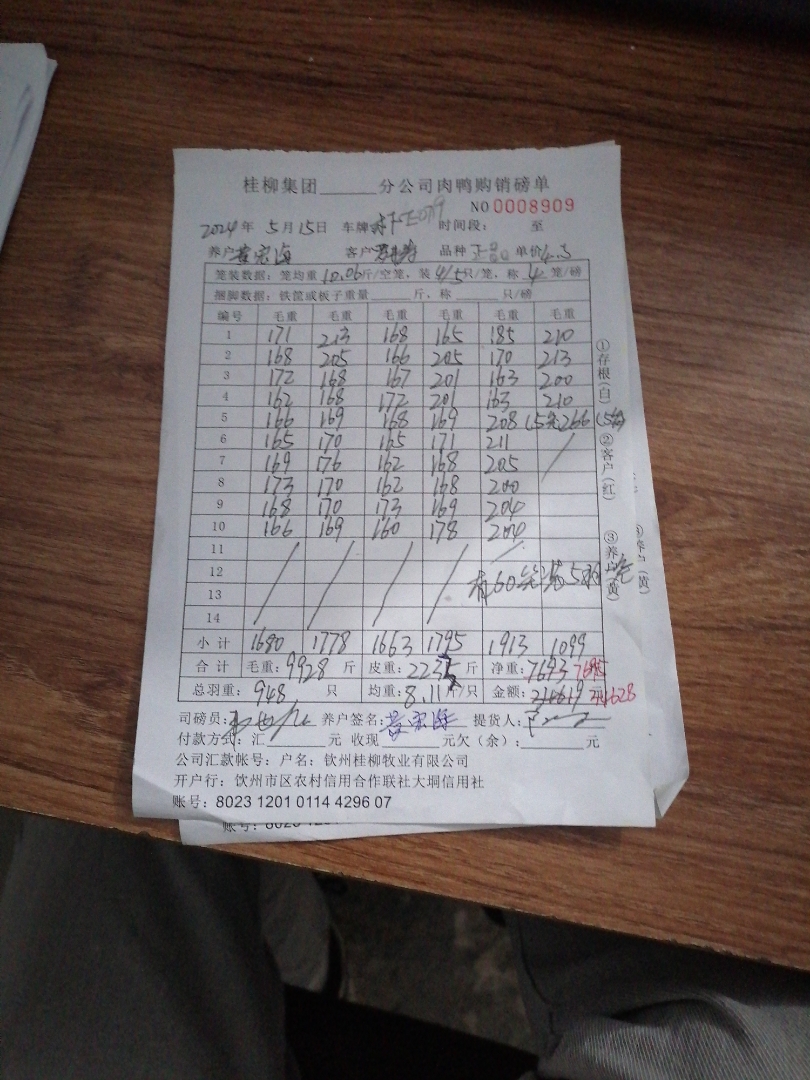 桂柳集团______分公司肉鸭购销磅单
NO 0008909
2024年 5月15日 车牌 时间段： 至
养户 黄宏海 客户 品种 正品 单价 4.5
笼装数据：笼均重 10.06斤/空笼，装 4/5只/笼，称 4 笼/磅
捆脚数据：铁筐或板子重量______斤，称______只/磅
编号 毛重 毛重 毛重 毛重 毛重 毛重
1 171 213 168 165 185 210
2 168 205 166 205 170 213
3 172 168 167 201 163 200
4 162 168 172 201 163 210
5 166 169 168 169 208 (5笼 266 (5笼)
6 165 170 165 171 211
7 169 176 162 168 205
8 173 170 162 168 200
9 168 170 173 169 204
10 166 169 160 178 204
11
12
有60笼装5只/笼
13
14
小计 1680 1778 1663 1795 1913 1099
合计 毛重：9928 斤 皮重：2235 斤 净重：7693 7695
总羽重：948 只 均重：8.11斤/只 金额：34619元 34628
司磅员： 养户签名：黄宏海 提货人：
付款方式：汇______元 收现______元欠（余）：______元
公司汇款帐号：户名：钦州桂柳牧业有限公司
开户行：钦州市区农村信用合作联社大垌信用社
账号：8023 1201 0114 4296 07
①存根（白）
②客户（红）
③养户（黄）